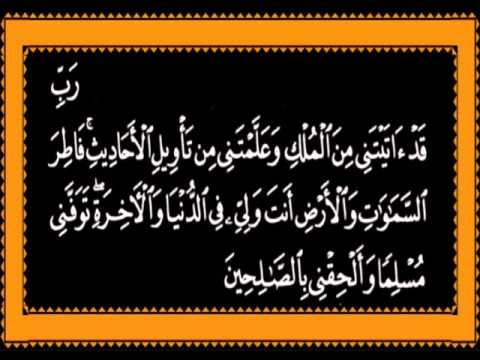 رَبِّ
قَدْ ءَاتَيْتَنِى مِنَ ٱلْمُلْكِ وَعَلَّمْتَنِى مِن تَأْوِيلِ ٱلْأَحَادِيثِ ۚ فَاطِرَ
ٱلسَّمَٰوَٰتِ وَٱلْأَرْضِ أَنتَ وَلِىِّۦ فِى ٱلدُّنْيَا وَٱلْءَاخِرَةِ ۖ تَوَفَّنِى
مُسْلِمًا وَأَلْحِقْنِى بِٱلصَّٰلِحِينَ